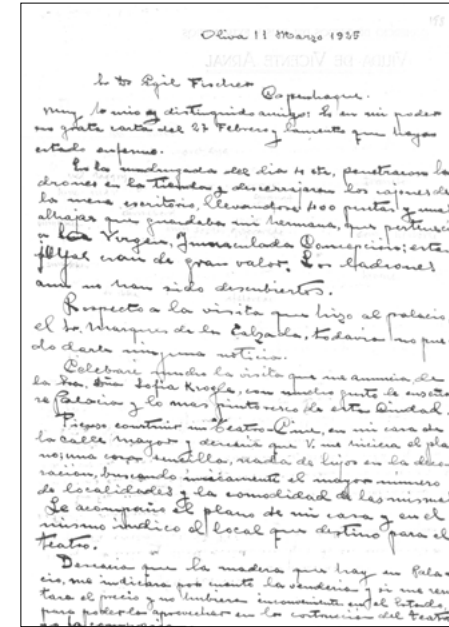 Oliva 11 Marzo 1935
VIUDA DE VICENTE ARNAL
Sr. Dr. Egil Fischer
Copenhague.
Muy Sr. mio y distinguido amigo: Es en mi poder
su grata carta del 27 Febrero y lamento que haya
estado enfermo.
En la madrugada del dia 4 cte, penetraron la
drones en la tienda y descerrajaron los cajones de
la mesa escritorio, llevandose 400 pesetas y unas
alhajas que guardaba mi hermana, que pertenecian
a la Virgen, Inmaculada Concepción; estas
eran de gran valor. Los ladrones
aun no han sido descubiertos.
Respecto a la visita que hizo al palacio,
el Sr. Marques de la Calzada, todavia no pue
do darle ninguna noticia.
Celebaré mucho la visita que me anuncia, de
la Sra. Dña Sofia Krogle, con mucho gusto le enseña
re Palacio y lo mas pintoresco de esta Ciudad.
Pienso construir un Teatro-Cine, en mi casa de
la calle mayor y desearia que V. me hiciera el pla
no; una cosa sencilla, nada de lujos en la deco
ración, buscando unicamente el mayor numero
de localidades y la comodidad de las mismas
Le acompaño el plano de mi casa y en el
mismo indico el local que destino para el
teatro.
Desearia que la madera que hay en Pala
cio, me indicara por cuanto la venderia y si me resul
tara el precio y no hubiera inconveniente en el Estado,
para poderla aprovechar en la contruccion del Teatro